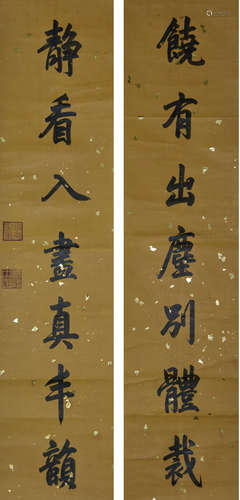 饒有出塵別體裁
靜看入畫真丰韻